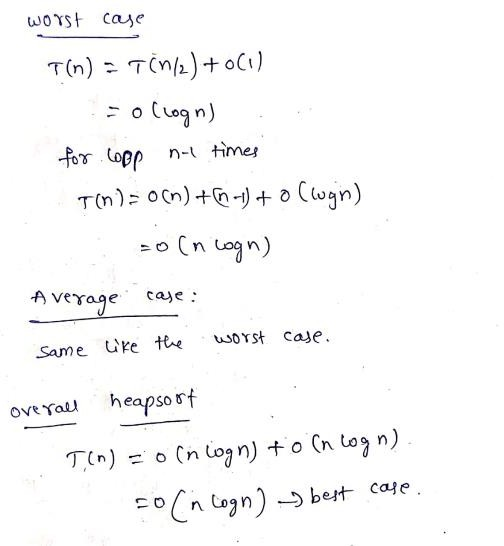 worst case
T(n) = T(n/2) + O(1)
= O(logn)
for loop n-1 times
T(n) = O(n) + (n-1) + O(logn)
= O(n logn)
Average case:
same like the worst case.
overall heapsort
T(n) = O(n logn) + O(n logn)
= O(n logn) → best case.